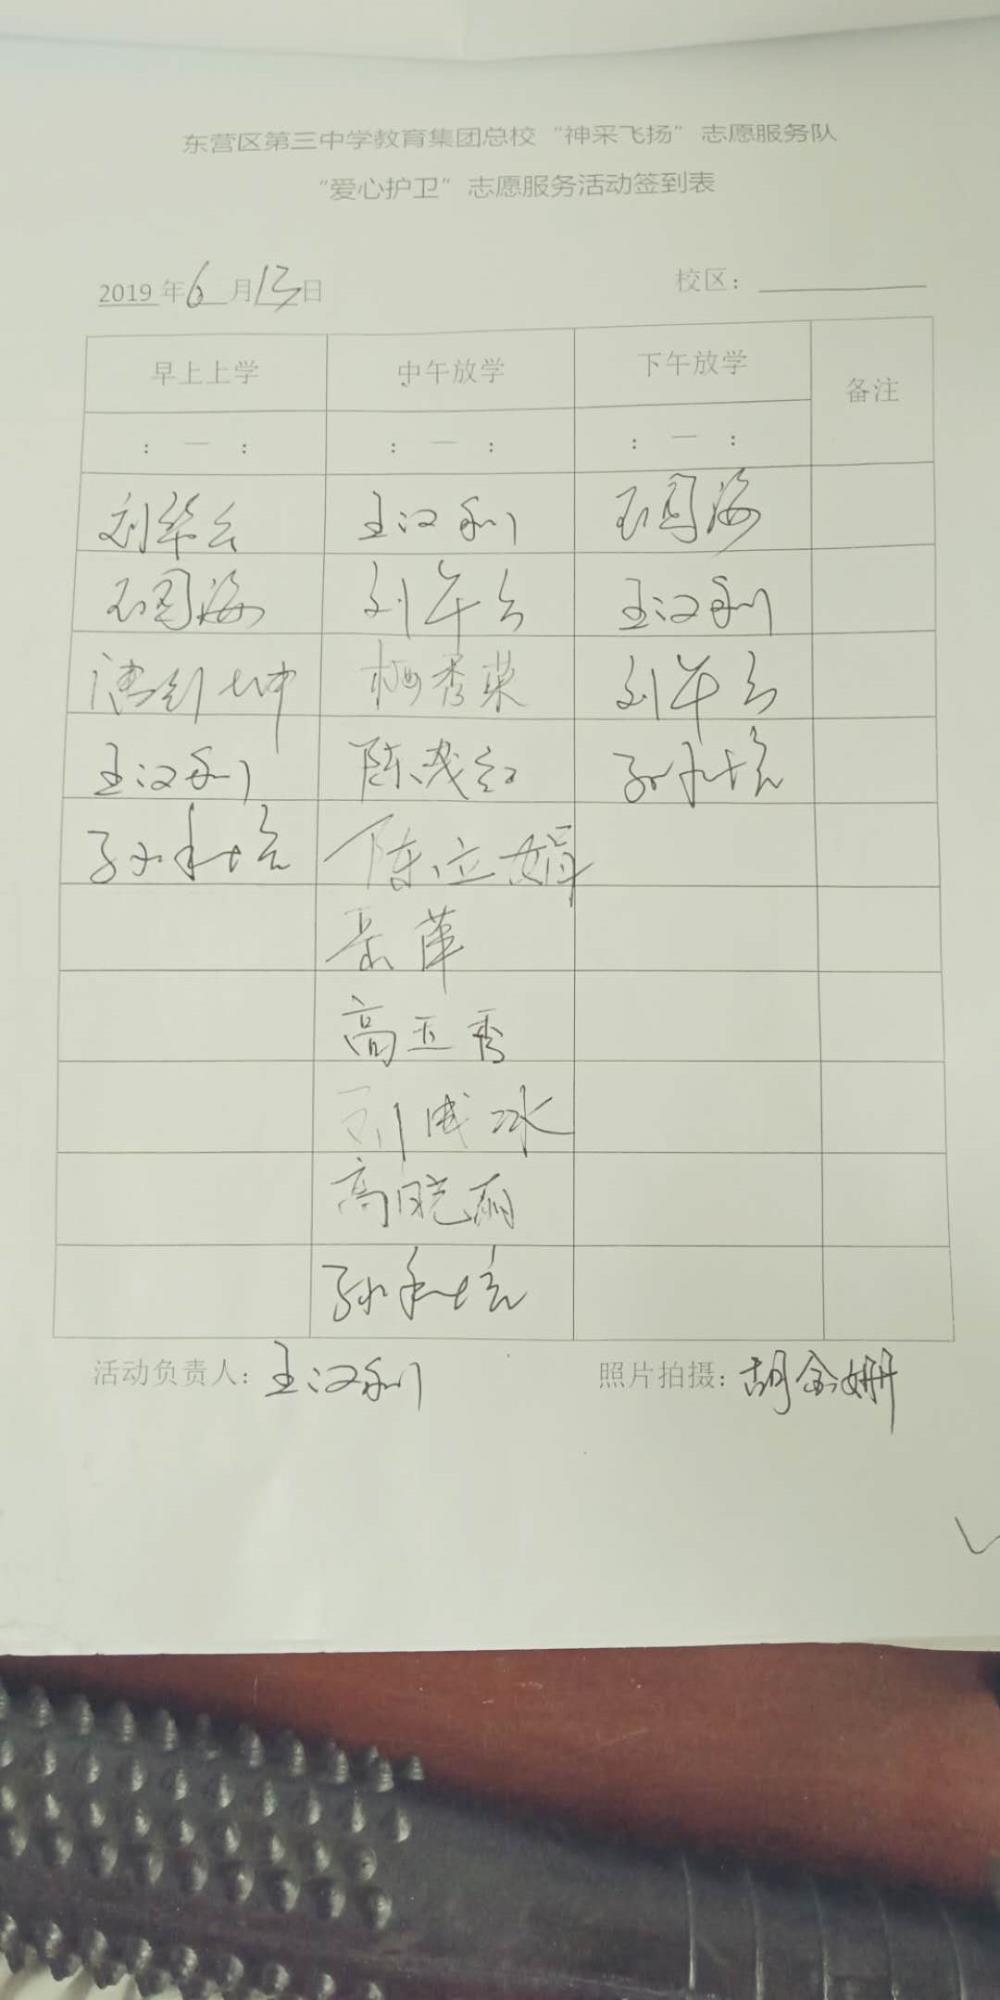 东营区第三中学教育集团总校“神采飞扬”志愿服务队
“爱心护卫”志愿服务活动签到表
2019 年 6 月 13 日 校区：
早上上学 中午放学 下午放学 备注
： — ： ： — ： ： — ：
刘华云 王汉利 石国海
石国海 刘华云 王汉利
梅秀荣 刘华云
王汉利 陈茂红 孙永培
孙永培 陈立娟
岳萍
高玉秀
刘成冰
高晓丽
孙永培
活动负责人：王汉利 照片拍摄：胡金姗